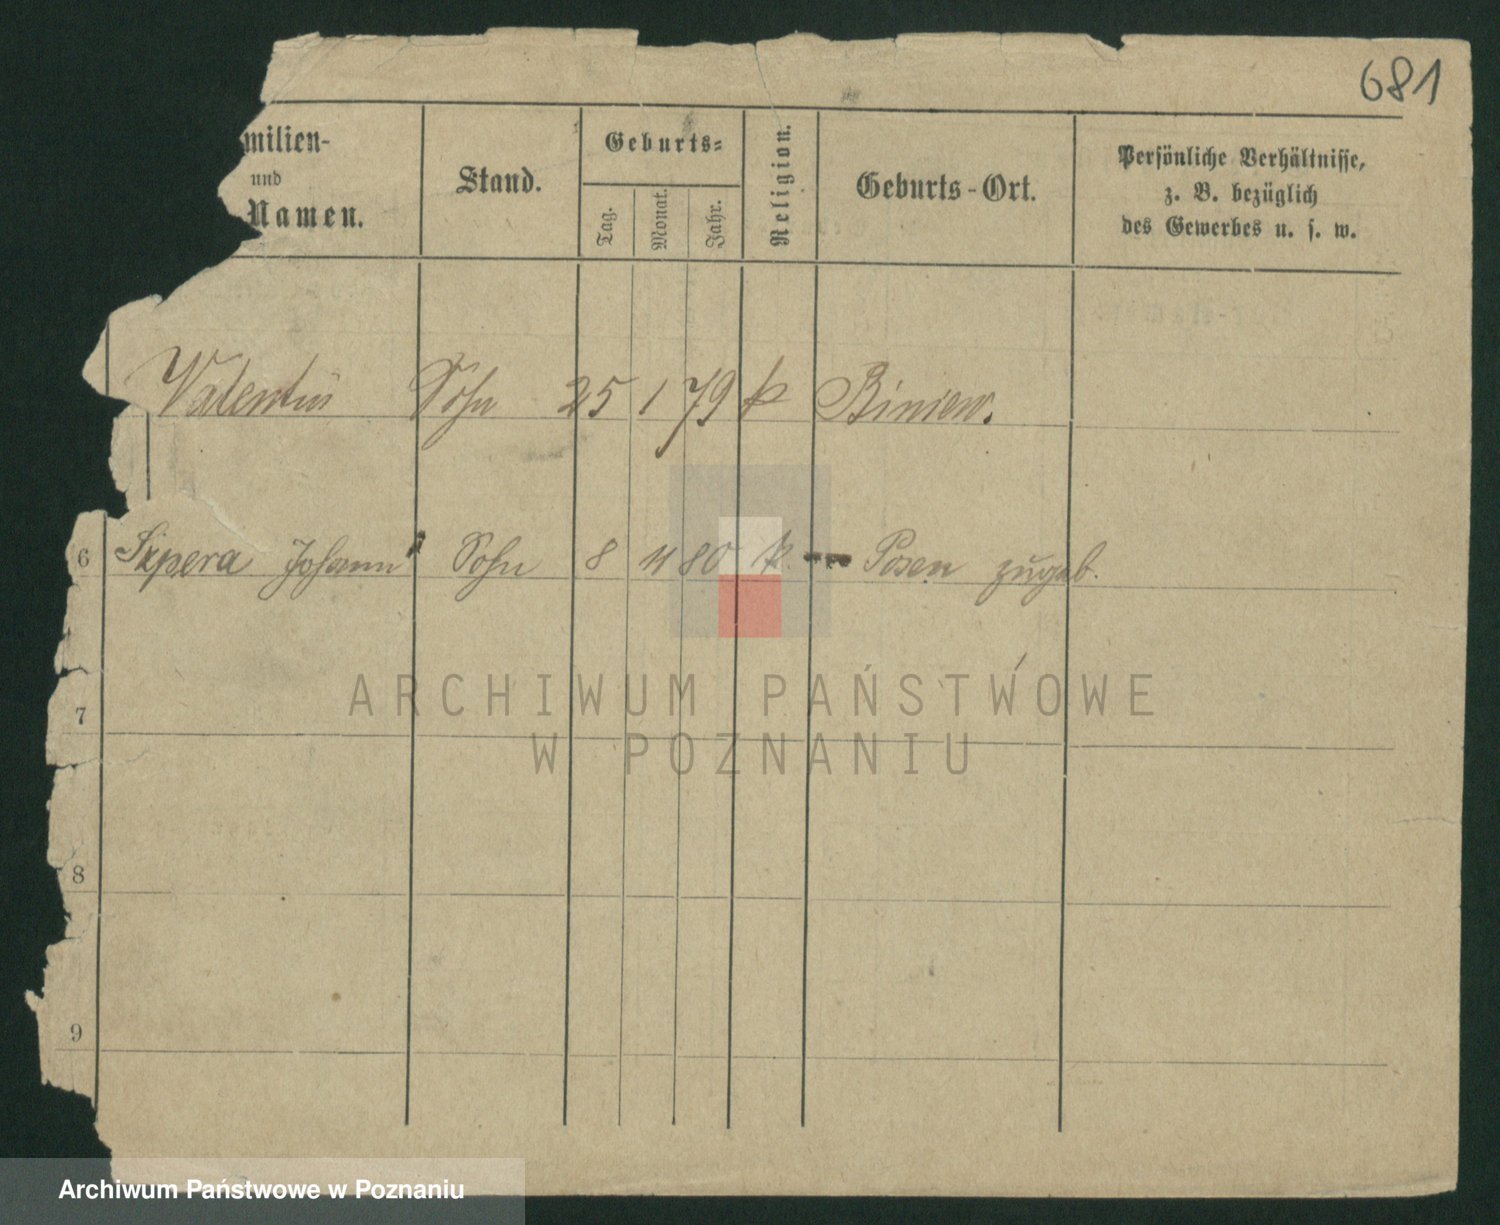 681
milien-
und
Namen.
Stand.
Geburts-
Tag.
Monat.
Jahr.
Religion.
Geburts-Ort.
Persönliche Verhältnisse,
z. B. bezüglich
des Gewerbes u. s. w.
Valentin Sohn 25 1 79 k Biniew.
6 Szpera Johann Sohn 8 11 80 k. Posen zugeb.
7
8
9
ARCHIWUM PAŃSTWOWE
W POZNANIU
Archiwum Państwowe w Poznaniu